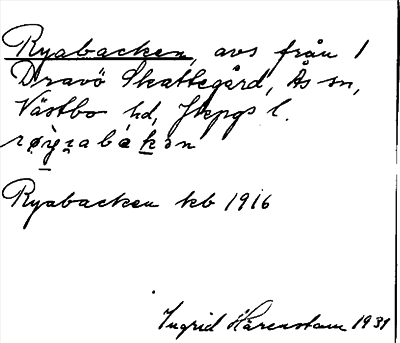 Ryabacken, avs från 1
Dravö Skattegård, Ås sn,
Västbo hd, Jkpgs l.
Ryabacken kb 1916
Ingrid Härenstam 1931